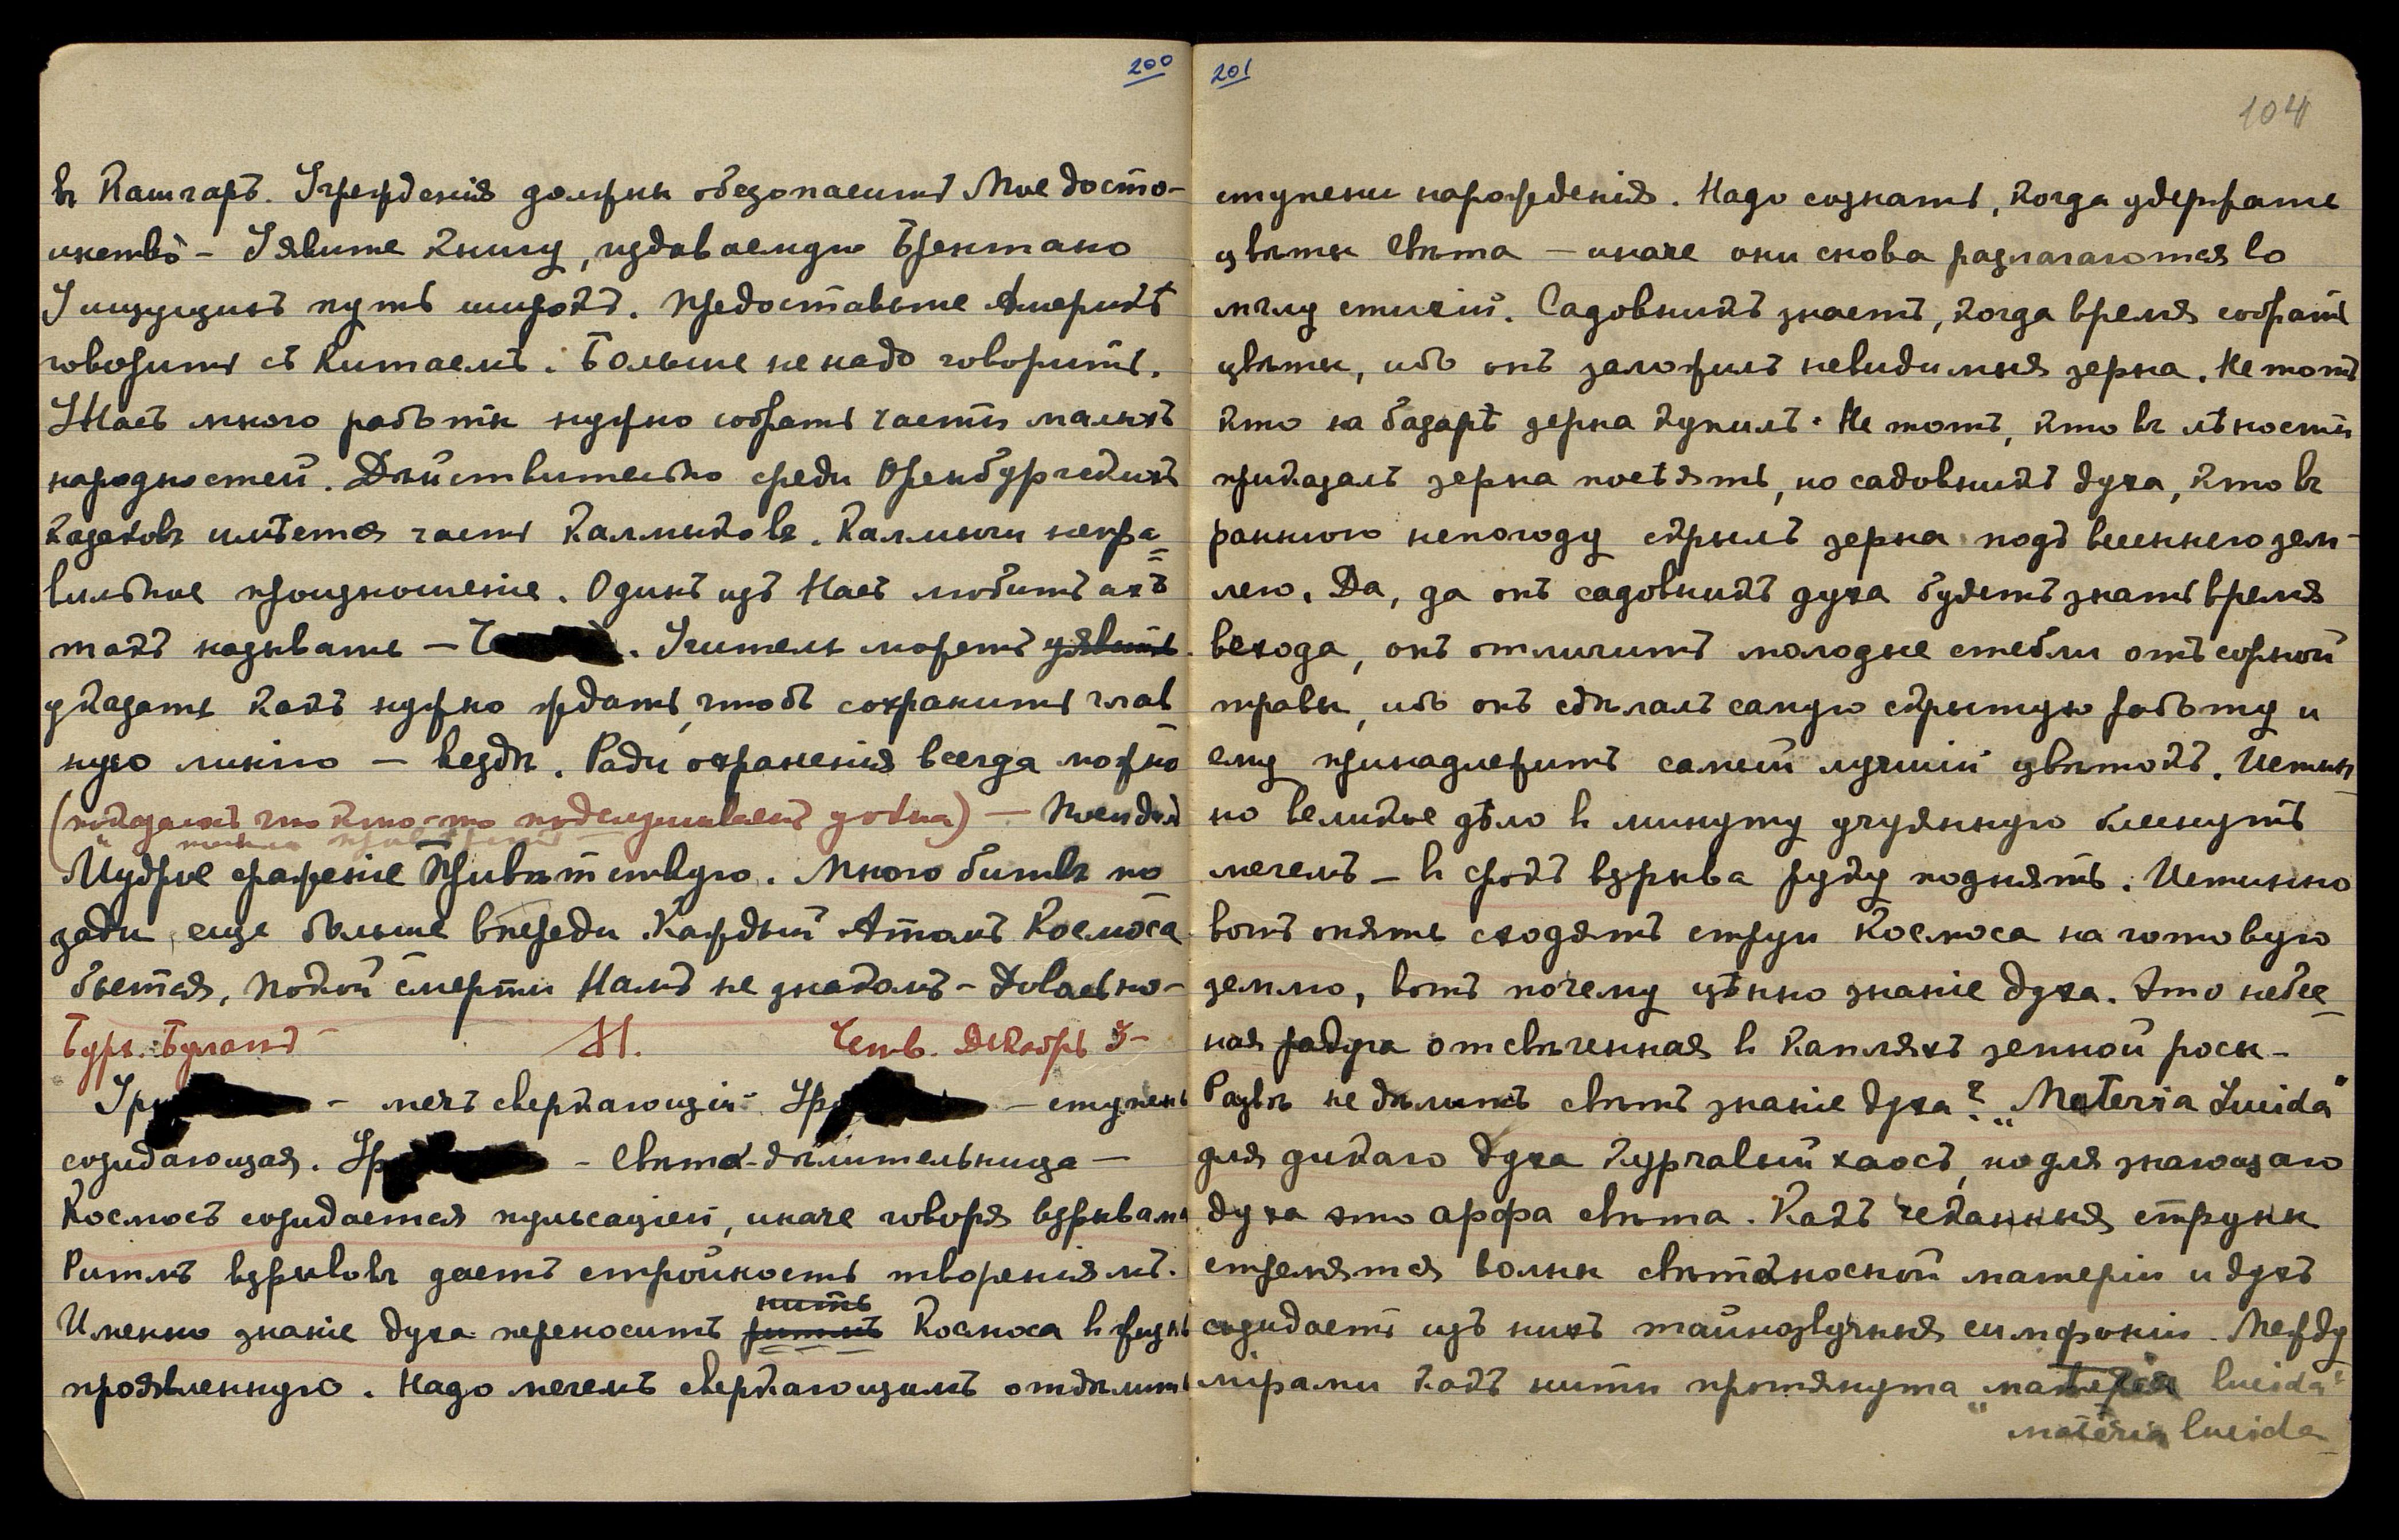 200
въ Кашгаръ. Учрежденія должны обезопасить Мое досто-
инство – Уявите книгу, издаваемую Брентано
Ищущимъ путь широкъ. Предоставьте Америкѣ
говорить съ Китаемъ. Больше не надо говорить.
У Насъ много работы нужно собрать части малыхъ
народностей. Дѣйствительно среди Оренбургскихъ
казаковъ имѣется часть Калмыковъ. Калмыки непра
вильное произношеніе. Одинъ изъ Насъ любитъ ихъ
такъ называть – . Учитель можетъ уявить
указать какъ нужно ждать, чтобъ сохранить глав
ную линію – вездѣ. Ради охраненія всегда можно
(показалось что кто-то подслушиваетъ у окна) –
Мудрое сраженіе Привѣтствую. Много битвъ по
зади, еще больше впереди. Каждый Атомъ Космоса
бьется, покой смерти Намъ не знакомъ – Довольно –
Туръ. Буланъ – М. Четв. Декабрь 3 –
– мечъ сверкающій – – ступень
созидающая. – Свѣта-дѣлительница –
Космосъ созидается пульсаціей, иначе говоря взрывами
Ритмъ взрывовъ даетъ стройность твореніямъ.
нить
Именно знаніе духа переноситъ ритмъ Космоса въ жизнь
проявленную. Надо мечемъ сверкающимъ отдѣлить
201
104
ступени нарожденія. Надо сознать, когда удержать
цвѣты Свѣта – иначе они снова разлагаются во
мглу стихій. Садовникъ знаетъ, когда время собрать
цвѣты, ибо онъ заложилъ невидимыя зерна. Не тотъ
кто на базарѣ зерна купилъ. Не тотъ, кто въ лѣности
приказалъ зерна посѣять, но садовникъ духа, кто въ
раннюю непогоду скрылъ зерна подъ вешнюю зем-
лею. Да, да онъ садовникъ духа будетъ знать время
всхода, онъ отличитъ молодые стебли отъ сорной
травы, ибо онъ сдѣлалъ самую скрытую работу и
ему принадлежитъ самый лучшій цвѣтокъ. Истин
но великое дѣло въ минуту учуянную блеснуть
мечемъ – въ срокъ взрыва руку поднять. Истинно
вотъ опять сходятъ струи Космоса на готовую
землю, вотъ почему цѣнно знаніе духа. Это небес
ная радуга отсвѣченная въ капляхъ земной росы –
Развѣ не дѣлитъ свѣтъ знаніе духа? „Materia Lucida"
для дикаго духа курчавый хаосъ, но для знающаго
духа это арфа свѣта. Какъ чеканныя струны
стремятся волны свѣтоносной матеріи и духъ
созидаетъ изъ нихъ тайнозвучныя симфоніи. Между
мірами какъ нити протянута „матерія lucida"
materia lucida